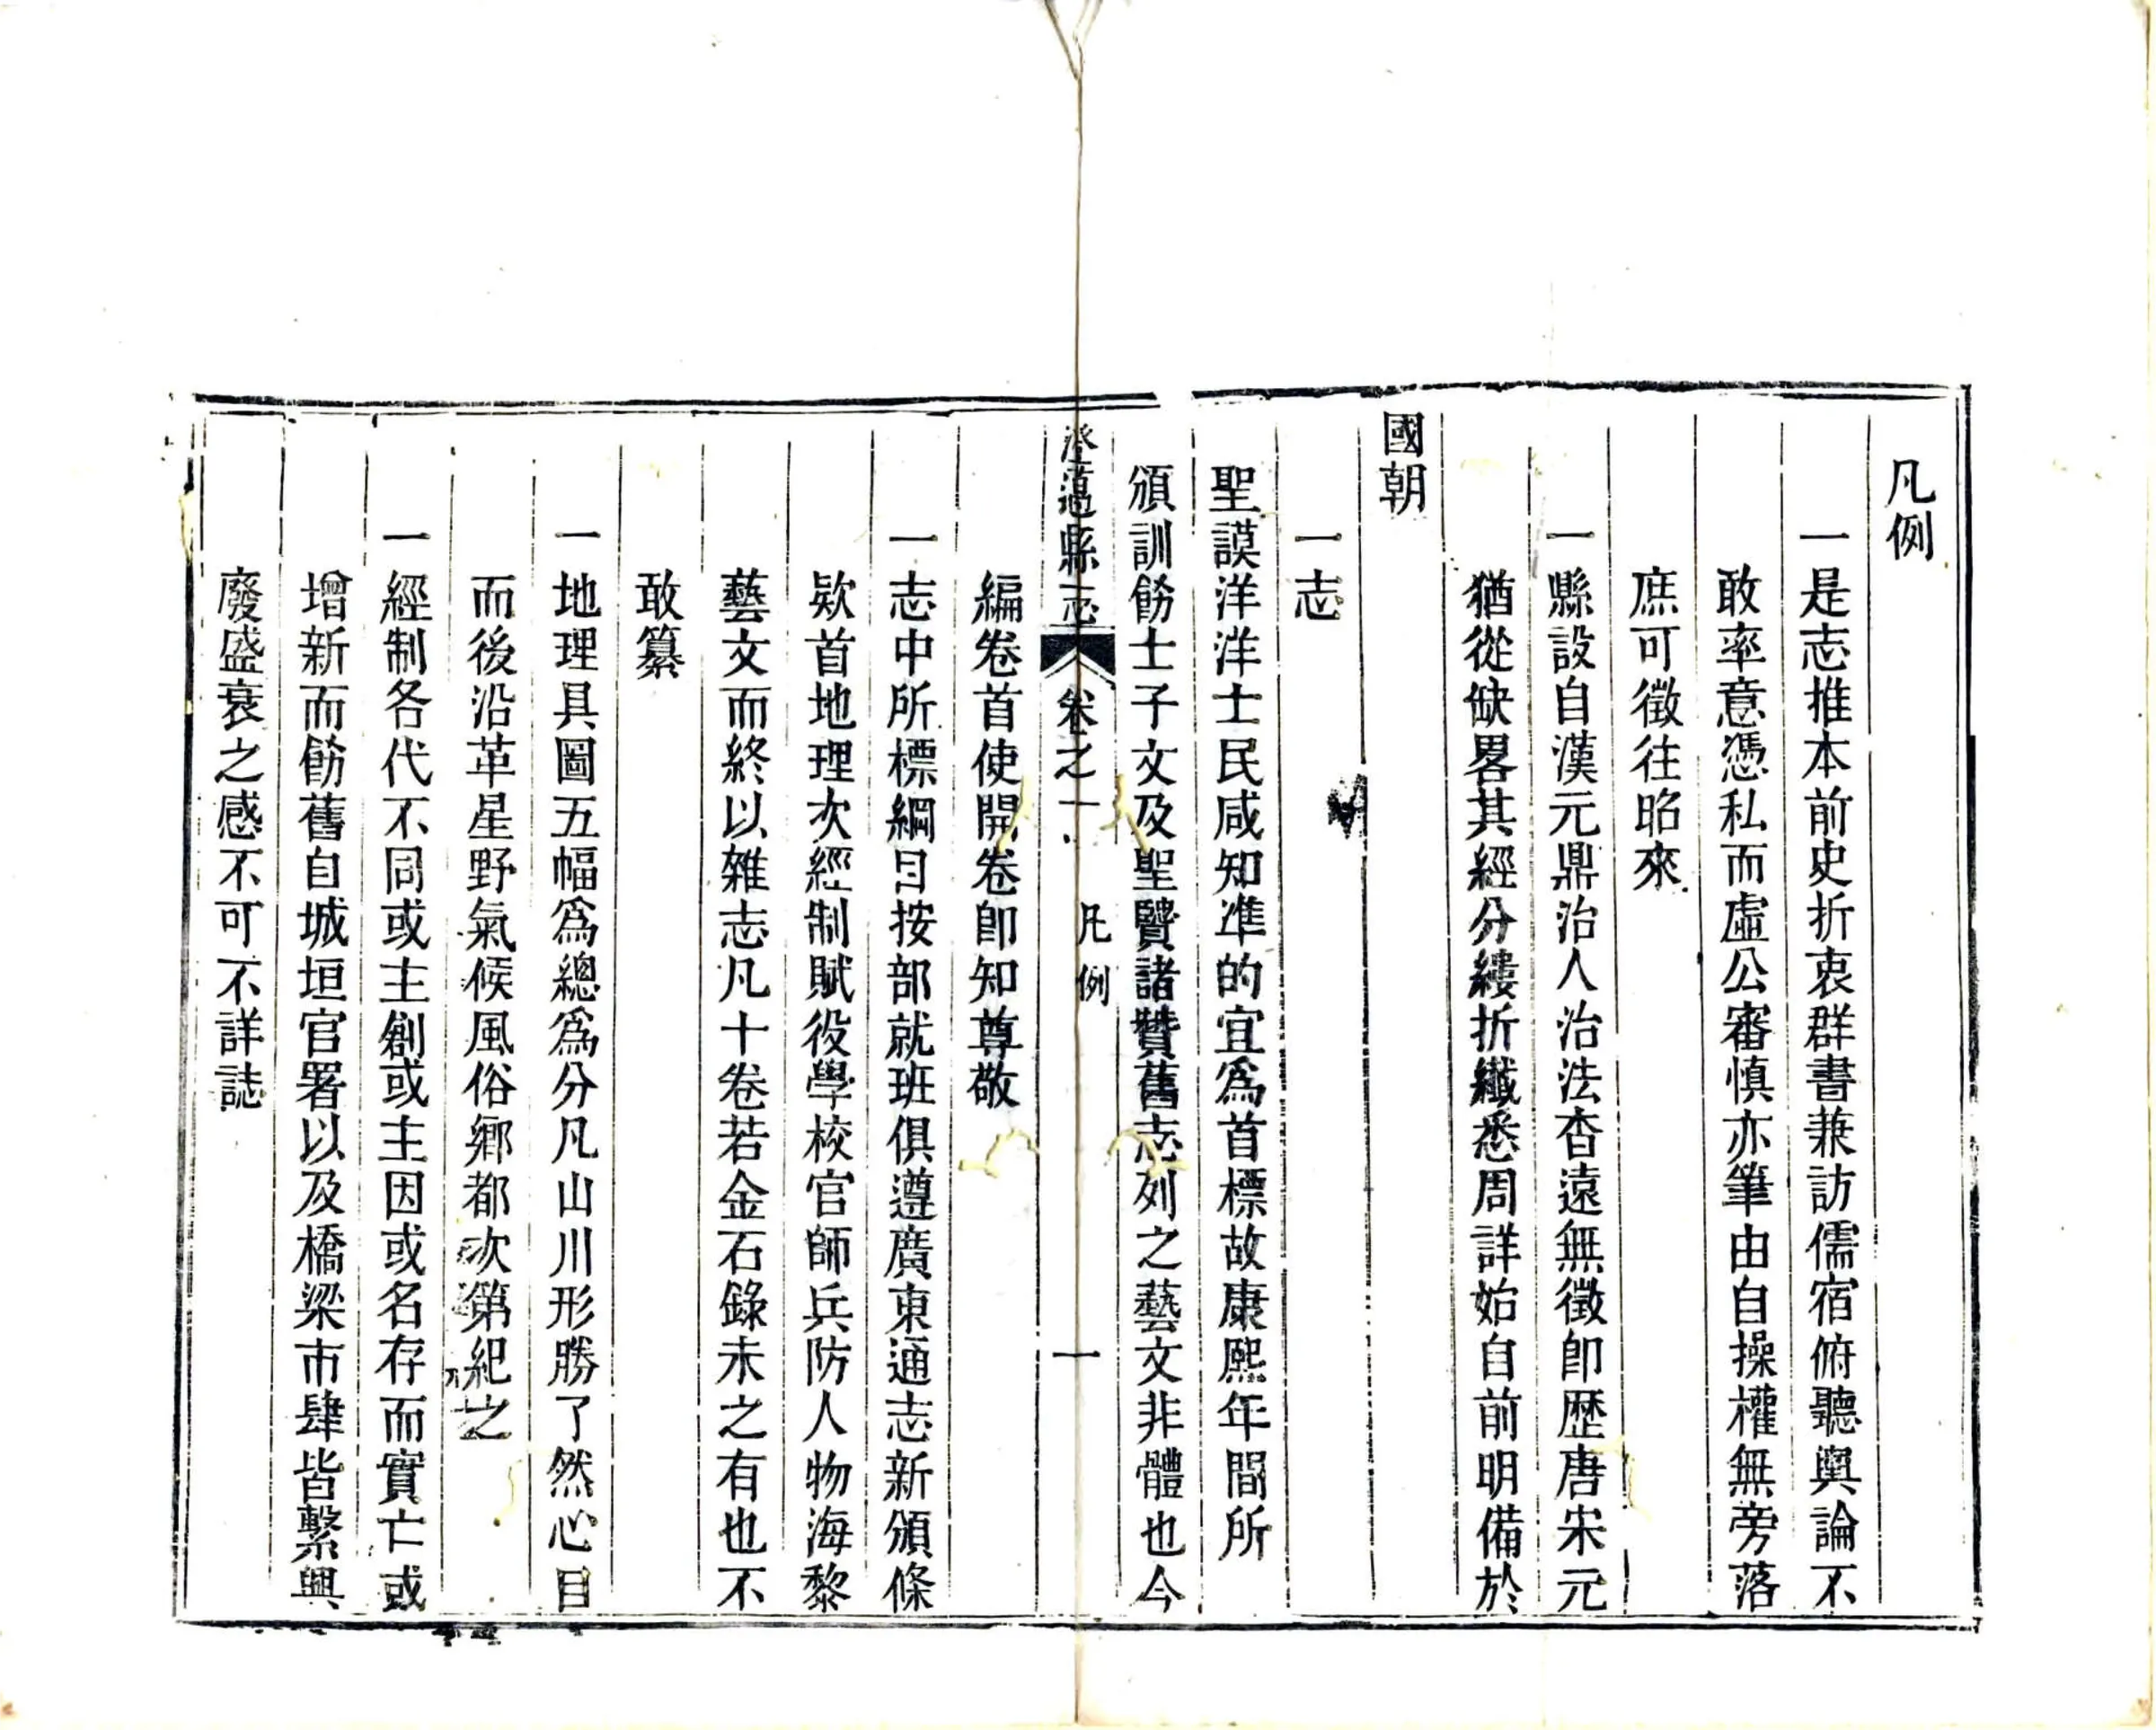 凡例
一是志推本前史折衷群書兼訪儒宿俯聽輿論不
敢率意憑私而虛公審慎亦筆由自操權無旁落
庶可徵往昭來
一縣設自漢元鼎治人治法杳遠無徵卽歴唐宋元
猶從缺畧其經分縷折纖悉周詳始自前明備於
國朝
一志
聖謨洋洋士民咸知準的宜爲首標故康熙年間所
頒訓飭士子文及聖賢諸贊舊志列之藝文非體也今
澄邁縣志 卷之一 凡例 一
編卷首使開卷卽知尊敬
一志中所標綱目按部就班俱遵廣東通志新頒條
欵首地理次經制賦役學校官師兵防人物海黎
藝文而終以雜志凡十卷若金石錄未之有也不
敢纂
一地理具圖五幅爲總爲分凡山川形勝了然心目
而後沿革星野氣候風俗鄉都次第紀之
一經制各代不同或主創或主因或名存而實亡或
增新而飭舊自城垣官署以及橋梁市肆皆繫興
廢盛衰之感不可不詳誌